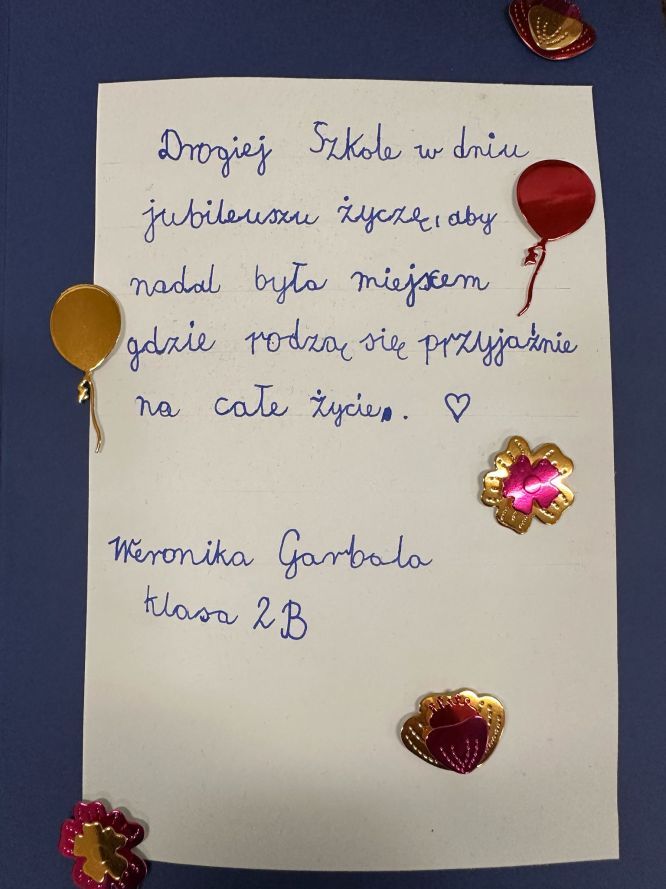 Drogiej Szkole w dniu
jubileuszu życzę, aby
nadal była miejscem
gdzie rodzą się przyjaźnie
na całe życie. ♡
Weronika Garbala
klasa 2B